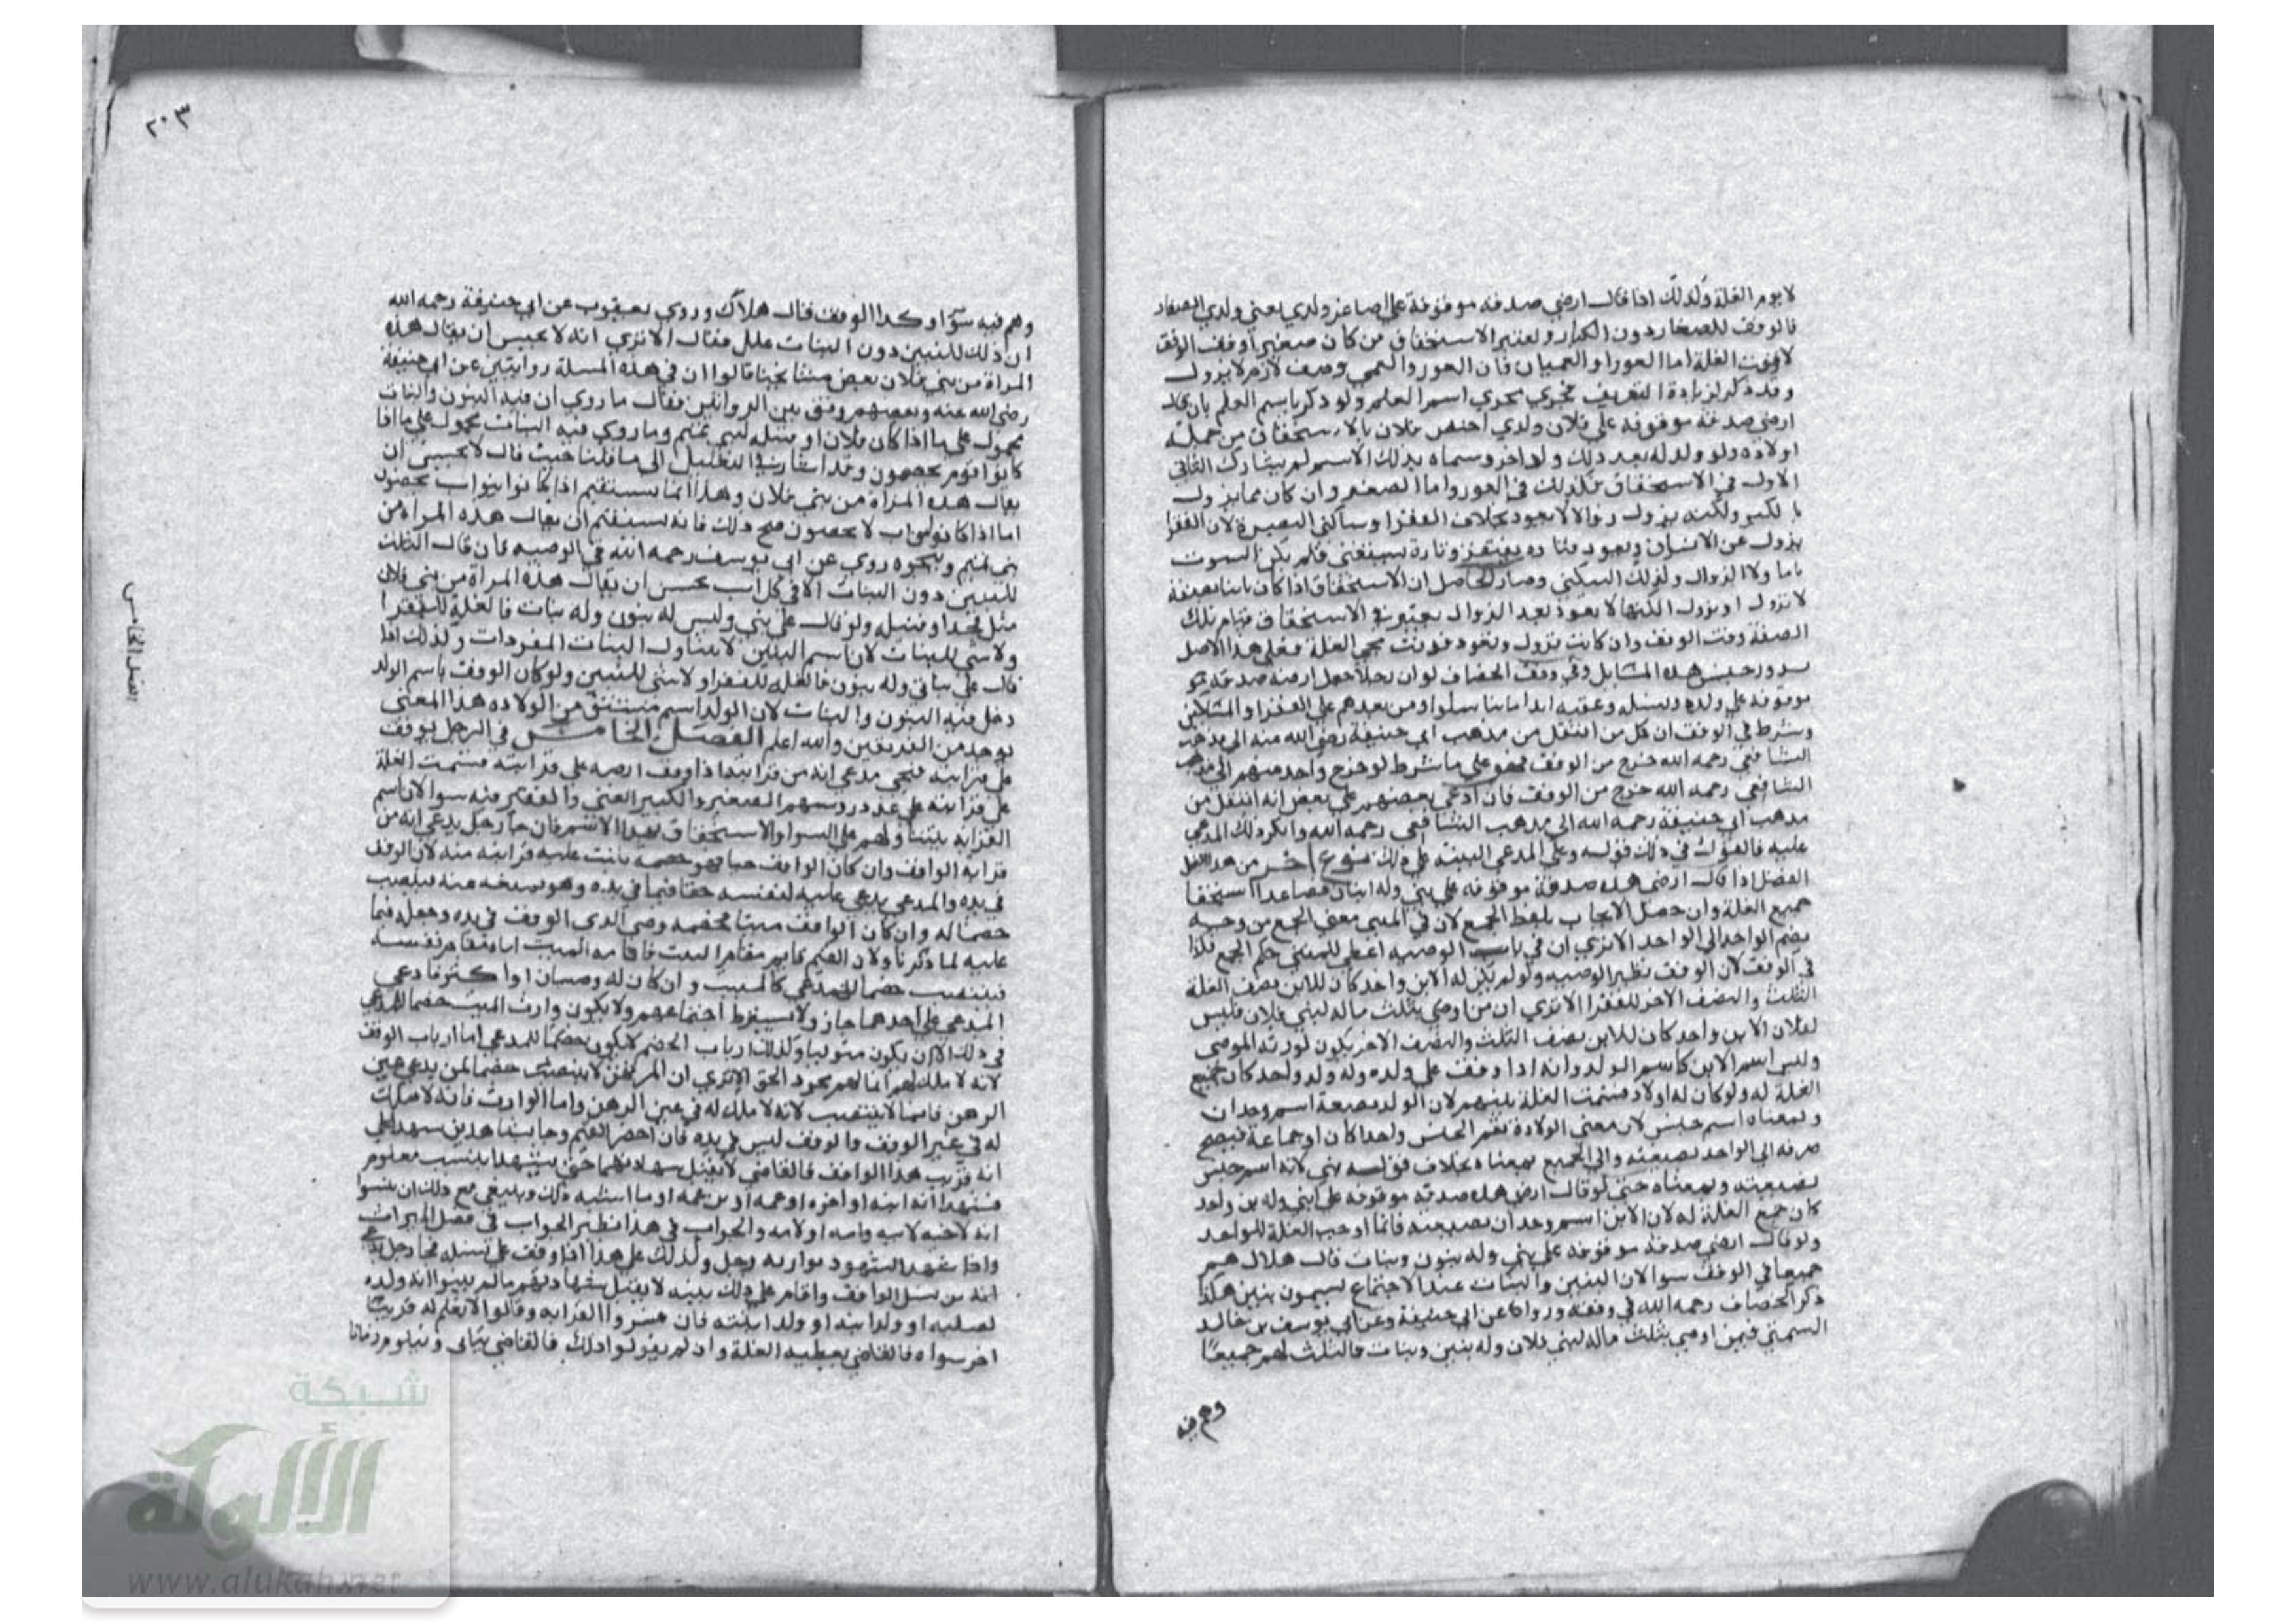 لا يوم الغلة وكذلك اذا قال ارضي صدقة موقوفة على اصاغر ولدي يعني ولدي الصغار
فالوقف للصغار دون الكبار ويعتبر الاستحقاق من كان صغيرا وقف الوقف
لا وقت الغلة اما العورا والعميان فان العور والعمي وصف لازم لا يزول
وقد ذكر لزيادة التعريف فجري مجري اسم العلم ولو ذكر باسم العلم بان قال
ارضي صدقة موقوفة على فلان ولدي اختص فلان بالاستحقاق من جملة
اولاده ولو ولد له بعد ذلك ولد اخر وسماه بذلك الاسم لم يشارك الثاني
الاول في الاستحقاق فكذلك في العور واما الصغير وان كان مما يزول
بالكبر ولكنه يزول زوالا لا يعود بخلاف الفقرا وساكني البصرة لان الفقر
يزول عن الانسان ويعود فتارة يفتقر وتارة يستغني فلم يكن
ولا الزوال وكذلك السكني وصار الحاصل ان الاستحقاق اذا كان ثابتا بصفة
لا تزول او تزول لكنها لا تعود بعد الزوال يعتبر في الاستحقاق قيام تلك
الصفة وقت الوقف وان كانت تزول وتعود فوقت مجي الغلة فعلى هذا الاصل
يدور جنس هذه المسايل وفي وقف الخصاف لو ان رجلا جعل ارضه صدقة
موقوفة على ولده ونسله وعقبه ابدا ما تناسلوا ومن بعدهم على الفقرا والمساكين
وشرط في الوقف ان كل من انتقل من مذهب ابي حنيفة رضي الله عنه الى مذهب
الشافعي رحمه الله خرج من الوقف فهو على ما شرط لو خرج واحد منهم الى مذهب
الشافعي رحمه الله خرج من الوقف فان ادعي بعضهم على بعض انه انتقل من
مذهب ابي حنيفة رحمه الله الى مذهب الشافعي رحمه الله وانكر ذلك المدعي
عليه فالقول في ذلك قوله وعلى المدعي البينة على ذلك نوع اخر من هذا
الفصل اذا قال ارضي هذه صدقة موقوفة على بني وله ابنان فصاعدا استحقا
جميع الغلة وان حصل الايجاب بلفظ الجمع لان في المثني معني الجمع من وجه
بضم الواحد الى الواحد الا تري ان في باب الوصية اعطي للمثني حكم الجمع فكذا
في الوقف لان الوقف نظير الوصية ولو لم يكن له الا ابن واحد كان للابن نصف الغلة
والنصف الاخر للفقرا الا تري ان من اوصي بثلث ماله لبني فلان فليس
لفلان الا ابن واحد كان للابن نصف الثلث والنصف الاخر يكون لورثة الموصي
وليس اسم الابن كاسم الولد وانه اذا وقف على ولده وله ولد واحد كان جميع
الغلة له ولو كان له اولاد قسمت الغلة بينهم لان الولد بصيغة اسم وحدان
وبمعناه اسم جنس لان معني الولادة تضم الجنس واحدا كان او جماعة فيصح
صرفه الى الواحد بصيغته والى الجميع بمعناه بخلاف قوله بني لانه اسم جنس
بصيغته وبمعناه حتى لو قال ارضي هذه صدقة موقوفة على ابني وله بن واحد
كان جميع الغلة له لان الابن اسم وحدان بصيغته فانما اوجب الغلة للواحد
ولو قال ارضي صدقة موقوفة على بني وله بنون وبنات قال هلال هم
جميعا في الوقف سوا لان البنين والبنات عند الاجتماع يسمون بنين هكذا
ذكر الخصاف رحمه الله في وقفه ورواه عن ابي حنيفة وعن ابي يوسف بن خالد
السمتي فيمن اوصي بثلث ماله لبني فلان وله بنين وبنات فالثلث لهم جميعا
وهم فيه
٢٠٣
وهم فيه سوا وكذا الوقف قال هلال وروي يعقوب عن ابي حنيفة رحمه الله
ان ذلك للبنين دون البنات علل فقال الا تري انه لا يحسن ان يقال هذه
المراة من بني فلان بعض مشايخنا قالوا ان في هذه المسلة روايتين عن ابي حنيفة
رضي الله عنه وبعضهم وفق بين الروايتين فقال ما روي ان فيه البنون والبنات
محمول على ما اذا كان فلان او قبيلة لبني تميم وما روي فيه البنات محمول على ما اذا
كانوا قوم يحصون وقد اشار في التعليل الى ما قلنا حيث قال لا يحسن ان
يقال هذه المراة من بني فلان وهذا انما يستقيم اذا كانوا بنواب يحصون
اما اذا كانوا لاب لا يحصون صح ذلك فانه يستقيم ان يقال هذه المراة من
بني تميم وبنحوه روي عن ابي يوسف رحمه الله في الوصية فان قال الثلث
للبنين دون البنات الا في كل اب يحسن ان يقال هذه المراة من بني فلان
مثل فخذ او قبيلة ولو قال على بني وليس له بنون وله بنات فالغلة للفقرا
ولا شي للبنات لان اسم البنين لا يتناول البنات المفردات وكذلك اذا
قال على بناتي وله بنون فالغلة للفقرا ولا شي للبنين ولو كان الوقف باسم الولد
دخل فيه البنون والبنات لان الولد اسم مشتق من الولادة وهذا المعني
يوجد من الفريقين والله اعلم الفصل الخامس في الرجل يوقف
على قرابته فيجي مدعي انه من قرابته اذا وقف ارضه على قرابته قسمت الغلة
على قرابته على عدد روسهم الصغير والكبير الغني والفقير فيه سوا لان اسم
القرابة يتناولهم على السوا والاستحقاق بهذا الاسم فان جا رجل يدعي انه من
قرابة الواقف وان كان الواقف حيا فهو خصمه يثبت عليه قرابته منه لان الوقف
في يده والمدعي يدعي عليه لنفسه حقا فيما في يده وهو يمنعه عنه فينتصب
خصما له وان كان الواقف ميتا فخصمه وصي الذي الوقف في يده وجعله قيما
عليه لما ذكرنا ولان القيم قايم مقام الميت فاقامه الميت اياه مقام نفسه
فينتصب خصما للمدعي كالميت وان كان له وصيان او اكثر فادعي
المدعي على احدهما جاز ولا يشترط اجتماعهم ولا يكون وارث الميت خصما للمدعي
في ذلك الا ان يكون متوليا وكذلك ارباب لا يكون خصما للمدعي اما ارباب الوقف
لانه لا ملك لهم انما لهم مجرد الحق الا تري ان المرتهن لا ينتصب خصما لمن يدعي عين
الرهن فانما لا ينتصب لانه لا ملك له في عين الرهن واما الوارث فانه لا ملك
له في عين الوقف والوقف ليس في يده فان احضر القيم وجا بشاهدين شهدا على
انه قريب هذا الواقف فالقاضي لا يقبل شهادتهما حتى يشهدا بنسب معلوم
فشهدا انه ابنه او اخوه او عمه او بن عمه او ما اشبه ذلك وينبغي مع ذلك ان يبينوا
انه لاخيه لابيه وامه او لامه والجواب في هذا نظير الجواب في فصل الميراث
واذا شهد الشهود بوراثة رجل وكذلك على هذا اذا وقف على نسله فجا رجل يدعي
انه من نسل الواقف واقام على ذلك بينة لا يقبل شهادتهم ما لم يبينوا انه ولده
لصلبه او ولد ابنه او ولد ابنته فان فسروا القرابة وقالوا لا نعلم له قريبا
اخر سواه فالقاضي يعطيه الغلة وان لم يقولوا ذلك فالقاضي يتاني ويتلوم زمانا
الفصل الخامس
شبكة
الألوكة
www.alukah.net